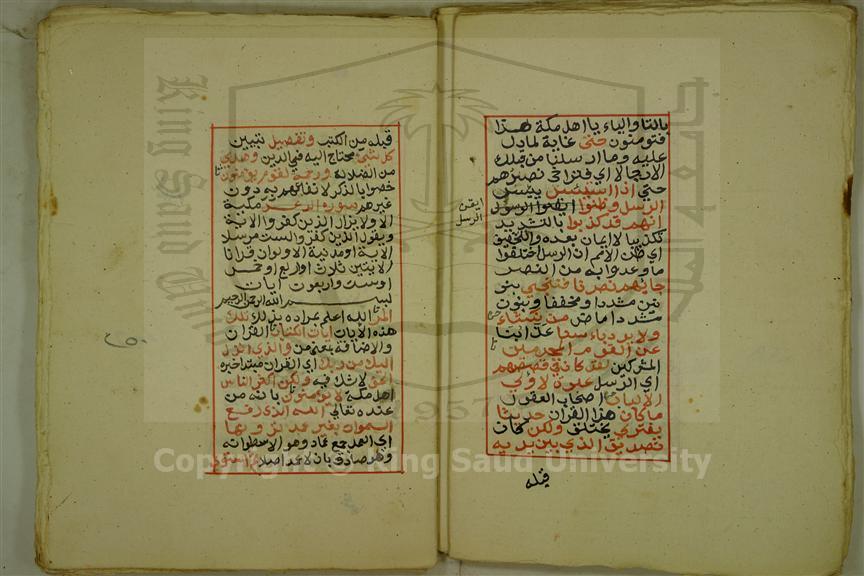 بالتا والياء يا اهل مكة هذا
فتومنون حتى غاية لما دل
عليه وما ارسلنا من قبلك
الا رجالا اي فتراخى نصرهم
حتى اذا استيئس ييئس
الرسل وظنوا ايقنوا الرسل
انهم قد كذبوا بالتشديد
تكذيبا لا ايمان بعده والتخفيف
اي ظن الامم ان الرسل اخلفوا
ما وعدوا به من النصر
جاءهم نصرنا فننجي بنو
نين مشددا ومخففا وبنون
مشددا ماض من نشاء
ولا يرد باسنا عذابنا
عن القوم المجرمين
المشركين لقد كان في قصصهم
اي الرسل عبرة لاولي
الالباب اصحاب العقول
ما كان هذا القران حديثا
يفترى يختلق ولكن كان
تصديق الذي بين يديه
قبله
ايقن
الرسل
قبله من الكتب وتفصيل تبيين
كل شيء محتاج اليه في الدين وهدى
من الضلالة ورحمة لقوم يومنون
خصوا بالذكر لانتفاعهم به دون
غيرهم سورة الرعد مكية
الا ولا يزال الذين كفروا الاية
ويقول الذين كفروا لست مرسلا
الاية او مدنية الا ولو ان قرانا
الايتين ثلاث او اربع او خمس
او ست واربعون ايات
بسم الله الرحمن الرحيم
المر الله اعلم بمراده بذلك تلك
هذه الايات ايات الكتاب القران
والاضافة بمعنى من والذي انزل
اليك من ربك اي القران مبتدا خبره
الحق لا شك فيه ولكن اكثر الناس
اهل مكة لا يومنون بانه من
عنده تعالى الله الذي رفع
السموات بغير عمد ترونها
اي العمد جمع عماد وهو الاسطوانة
وهو صادق بان لا عمد اصلا ثم استوى
Copyright © King Saud University
King Saud University
1957